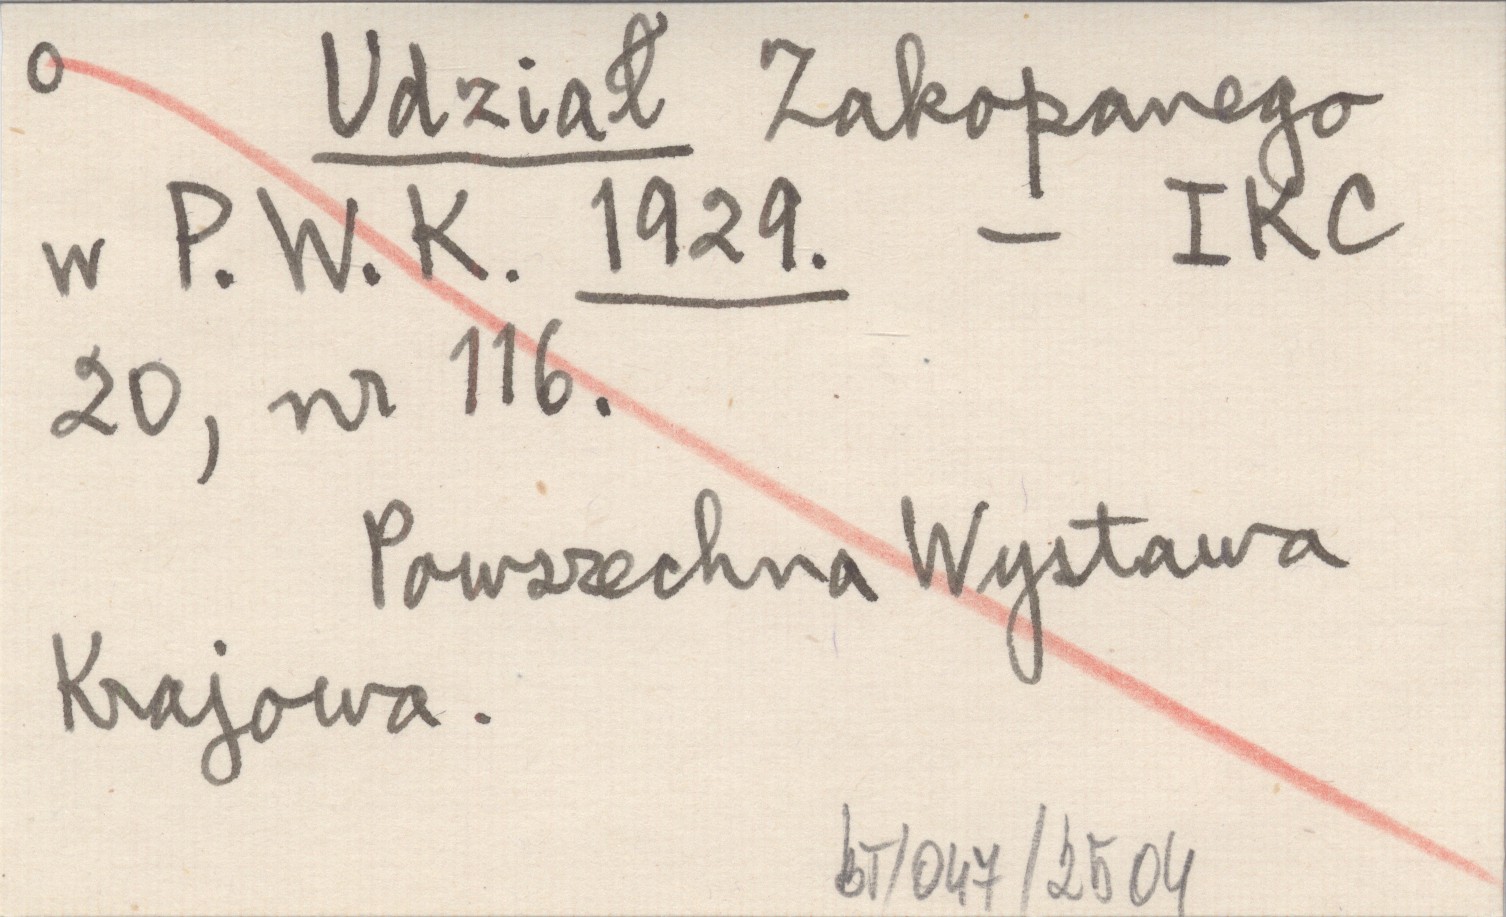 o Udział Zakopanego
w P. W. K. 1929. – IKC
20, nr 116.
Powszechna Wystawa
Krajowa.
bT/047/2504